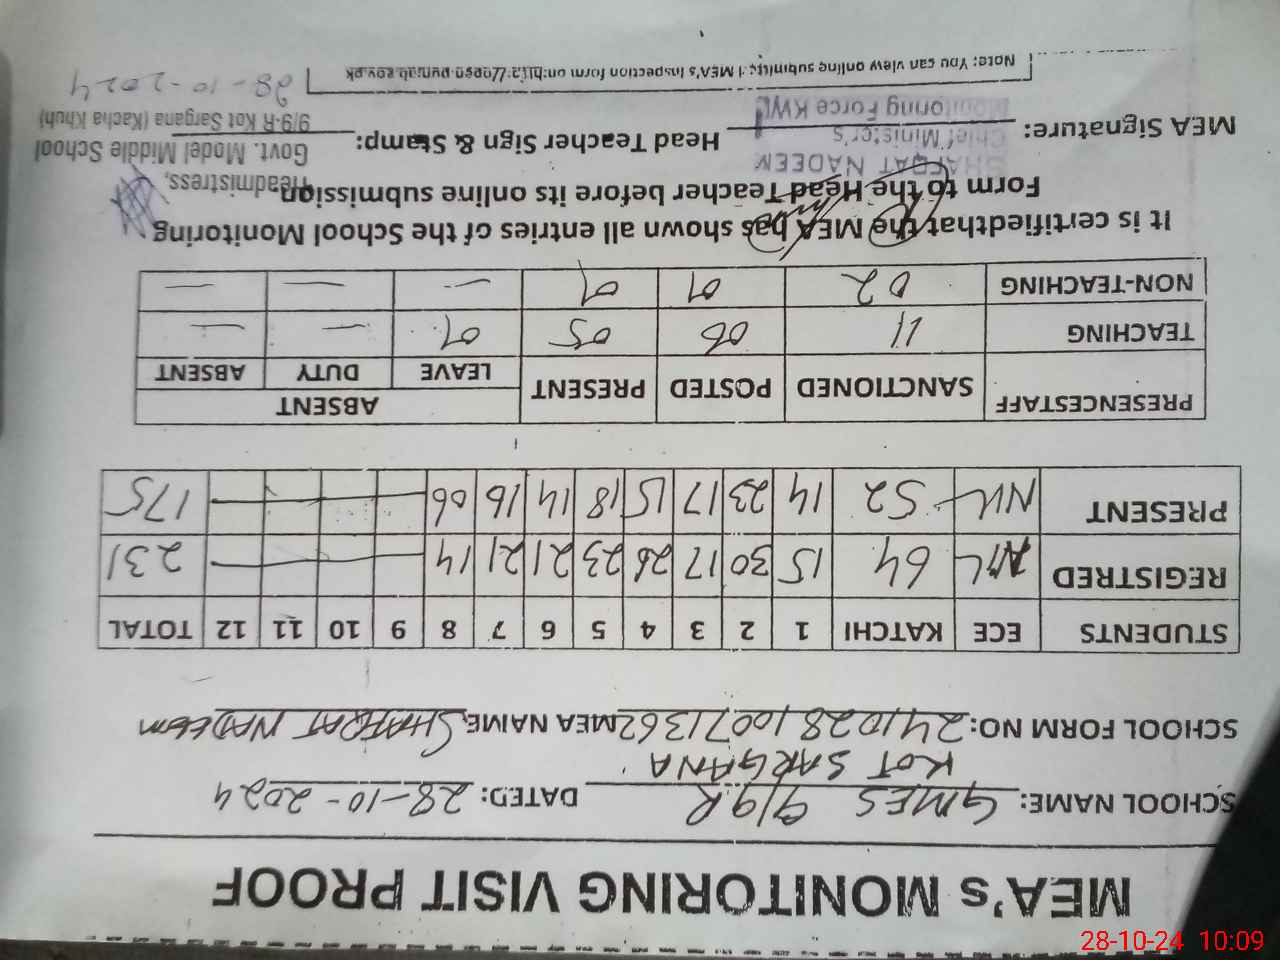 MEA's MONITORING VISIT PROOF
SCHOOL NAME: GMES 9/9R DATED: 28-10-2024
KOT SARGANA
SCHOOL FORM NO: 24102810071362 MEA NAME SHAFQAT NADEEM
STUDENTS ECE KATCHI 1 2 3 4 5 6 7 8 9 10 11 12 TOTAL
REGISTRED NIL 64 15 30 17 26 23 21 21 14 231
PRESENT NIL 52 14 23 17 15 18 14 16 06 175
PRESENCESTAFF SANCTIONED POSTED PRESENT ABSENT
LEAVE DUTY ABSENT
TEACHING 11 06 05 01 — —
NON-TEACHING 02 01 01 — — —
It is certifiedthat the MEA has shown all entries of the School Monitoring
Form to the Head Teacher before its online submission
SHAFQAT NADEEM
Chief Minister's
Monitoring Force KWL
MEA Signature: Head Teacher Sign & Stamp:
Headmistress,
Govt. Model Middle School
9/9-R Kot Sargana (Kacha Khuh)
28-10-2024
Note: You can view online submitted MEA's inspection form on:http://open.punjab.gov.pk
28-10-24 10:09